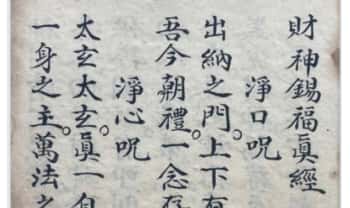 財神錫福眞經
淨口呪
出納之門。上下有
吾今朝禮。一念存
淨心呪
太玄太玄。眞一自
一身之主。萬法之